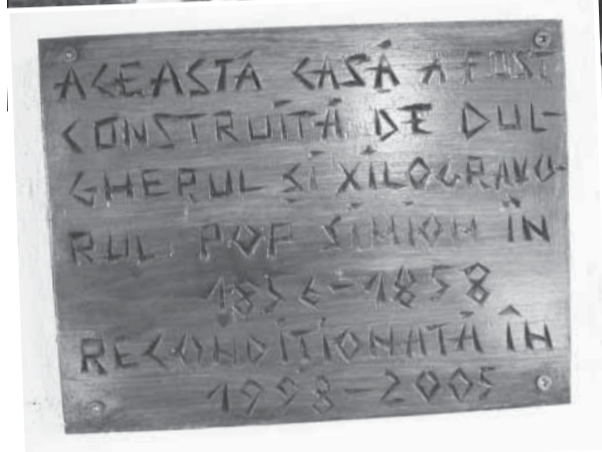 ACEASTĂ CASĂ A FOST
CONSTRUITĂ DE DUL-
GHERUL ȘI XILOGRAVO-
RUL POP SIMION ÎN
1856-1858
RECONDIȚIONATĂ ÎN
1998-2005